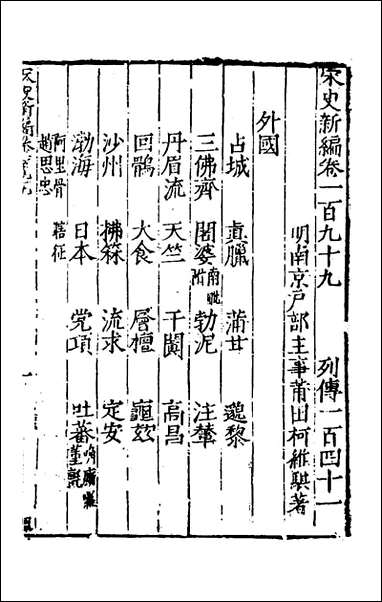 宋史新編卷一百九十九 列傳一百四十一
明南京戶部主事莆田柯維騏著
外國
占城 真臘 蒲甘 邈黎
三佛齊 闍婆 南毗附 勃泥 注輦
丹眉流 天竺 于闐 高昌
回鶻 大食 層檀 龜玆
沙州 拂菻 流求 定安
渤海 日本 党項 吐蕃 唃廝囉 董氊
阿里骨 瞎征
趙思忠